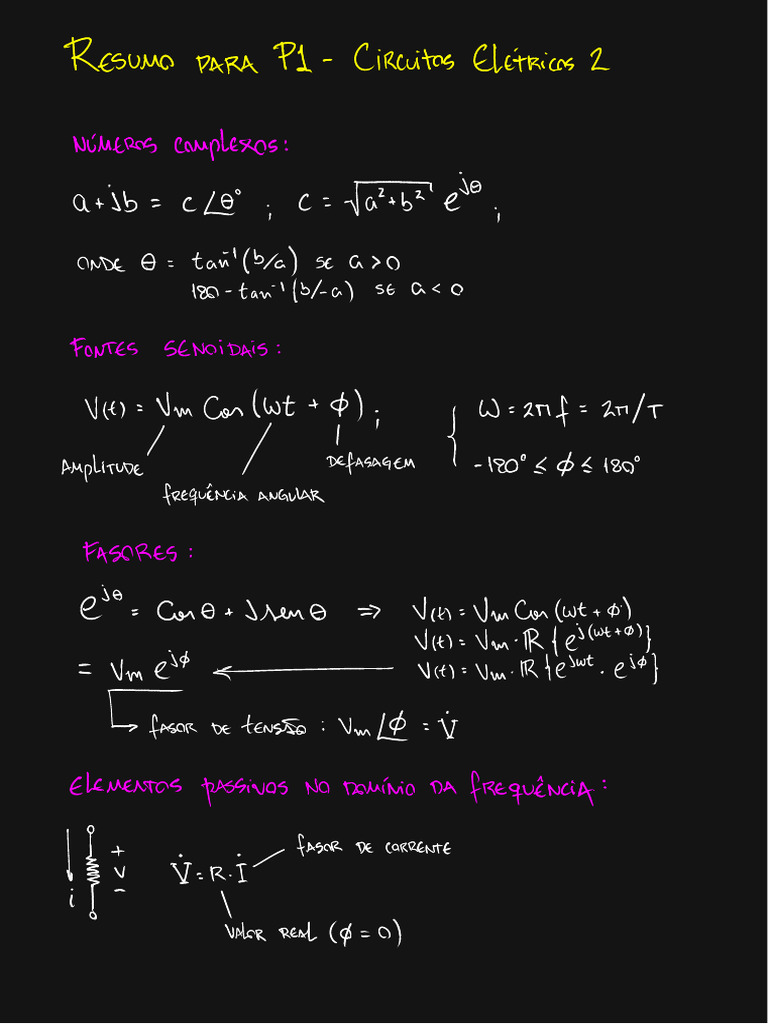 RESUMO PARA P1 - CIRCUITOS ELÉTRICOS 2
NÚMEROS COMPLEXOS:
a + jb = c∠θ° ; c = √(a²+b²) e^{jθ} ;
ONDE θ = tan⁻¹(b/a) SE a > 0
180 - tan⁻¹(b/-a) SE a < 0
FONTES SENOIDAIS:
V(t) = Vm Cos(ωt + φ) ;
AMPLITUDE
FREQUÊNCIA ANGULAR
DEFASAGEM
ω = 2πf = 2π/T
-180° ≤ φ ≤ 180°
FASORES:
e^{jθ} = Cos θ + J sen θ ⇒ V(t) = Vm Cos(ωt + φ)
V(t) = Vm · ℝ{e^{j(ωt+φ)}}
= Vm e^{jφ} ← V(t) = Vm · ℝ{e^{jωt} · e^{jφ}}
↳ FASOR DE TENSÃO : Vm∠φ = V̇
ELEMENTOS PASSIVOS NO DOMÍNIO DA FREQUÊNCIA:
i + V −
V̇ = R · İ
FASOR DE CORRENTE
VALOR REAL (φ = 0)